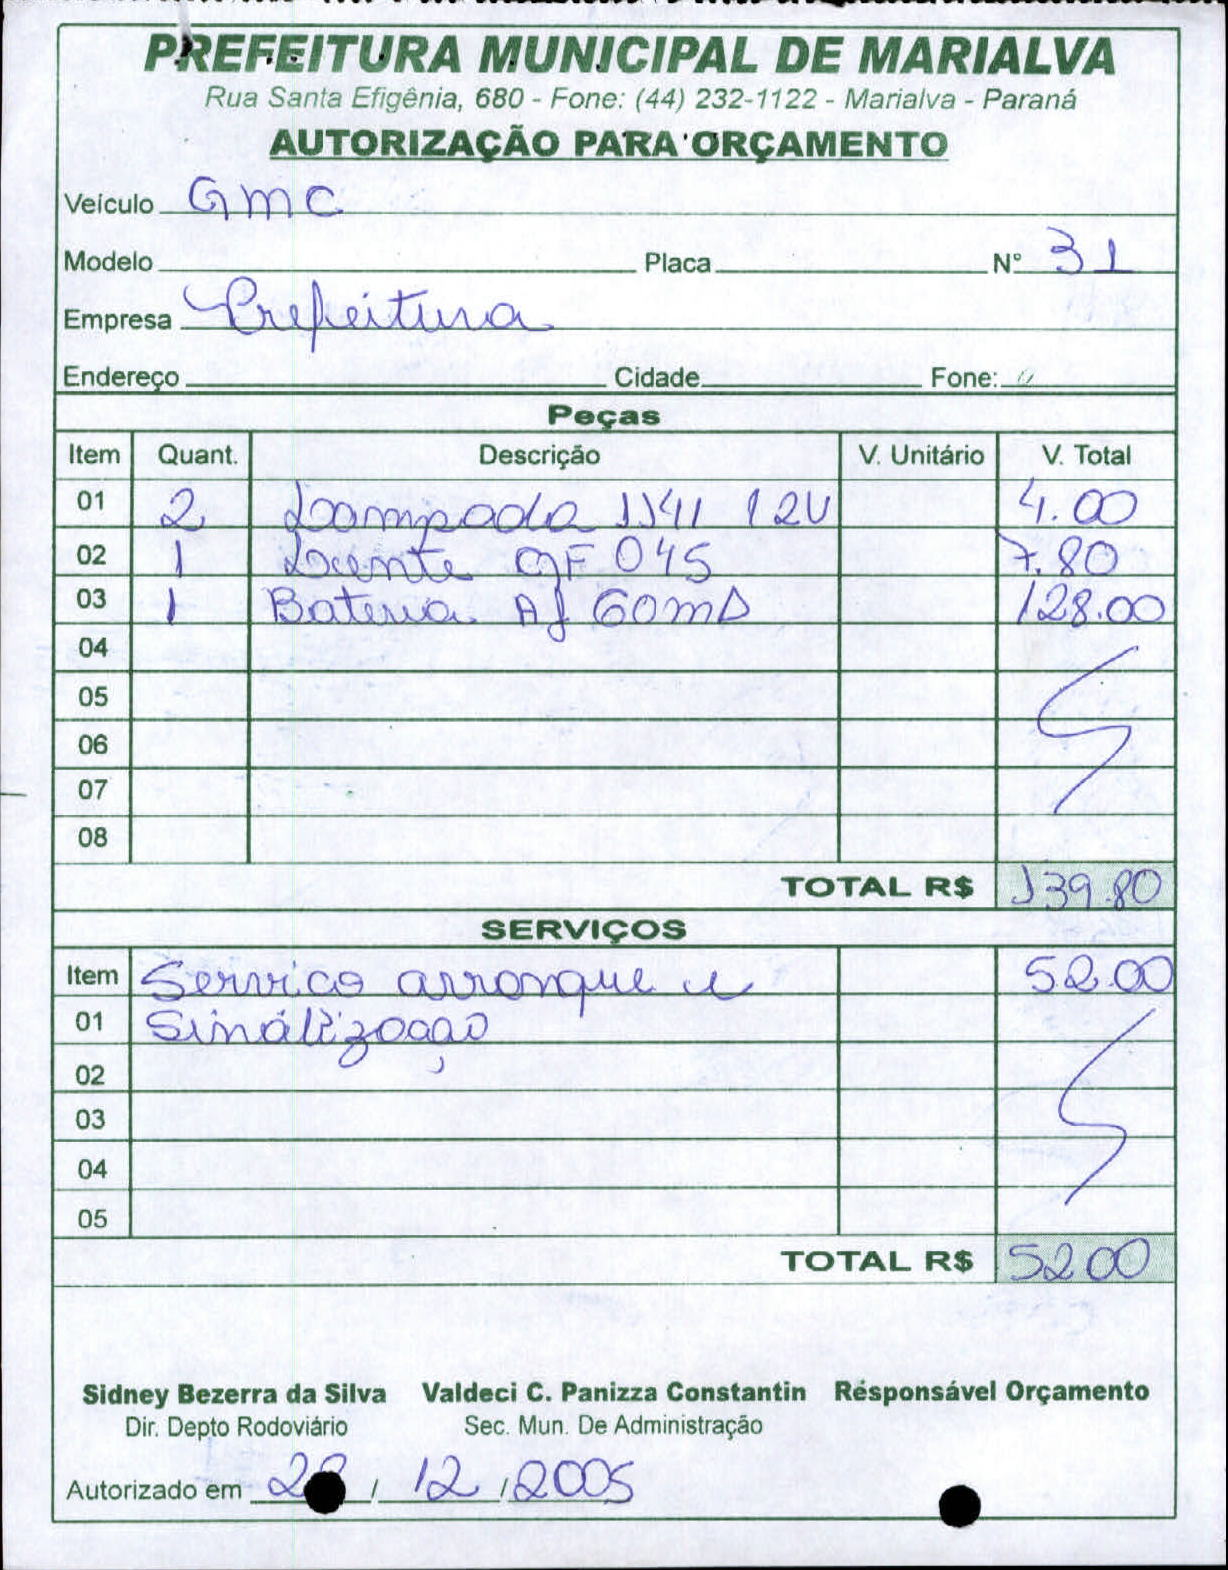 PREFEITURA MUNICIPAL DE MARIALVA
Rua Santa Efigênia, 680 - Fone: (44) 232-1122 - Marialva - Paraná
AUTORIZAÇÃO PARA ORÇAMENTO
Veículo GMC
Modelo Placa Nº 31
Empresa Prefeitura
Endereço Cidade Fone:
Peças
Item Quant. Descrição V. Unitário V. Total
01 2 Lampada 1141 12V 4.00
02 1 045 7.80
03 1 Bateria 128.00
04
05
06
07
08
TOTAL R$ 139.80
SERVIÇOS
Item Servico arranque e 52.00
01 Sinálização
02
03
04
05
TOTAL R$ 52.00
Sidney Bezerra da Silva Valdeci C. Panizza Constantin Responsável Orçamento
Dir. Depto Rodoviário Sec. Mun. De Administração
Autorizado em / 12 / 2005